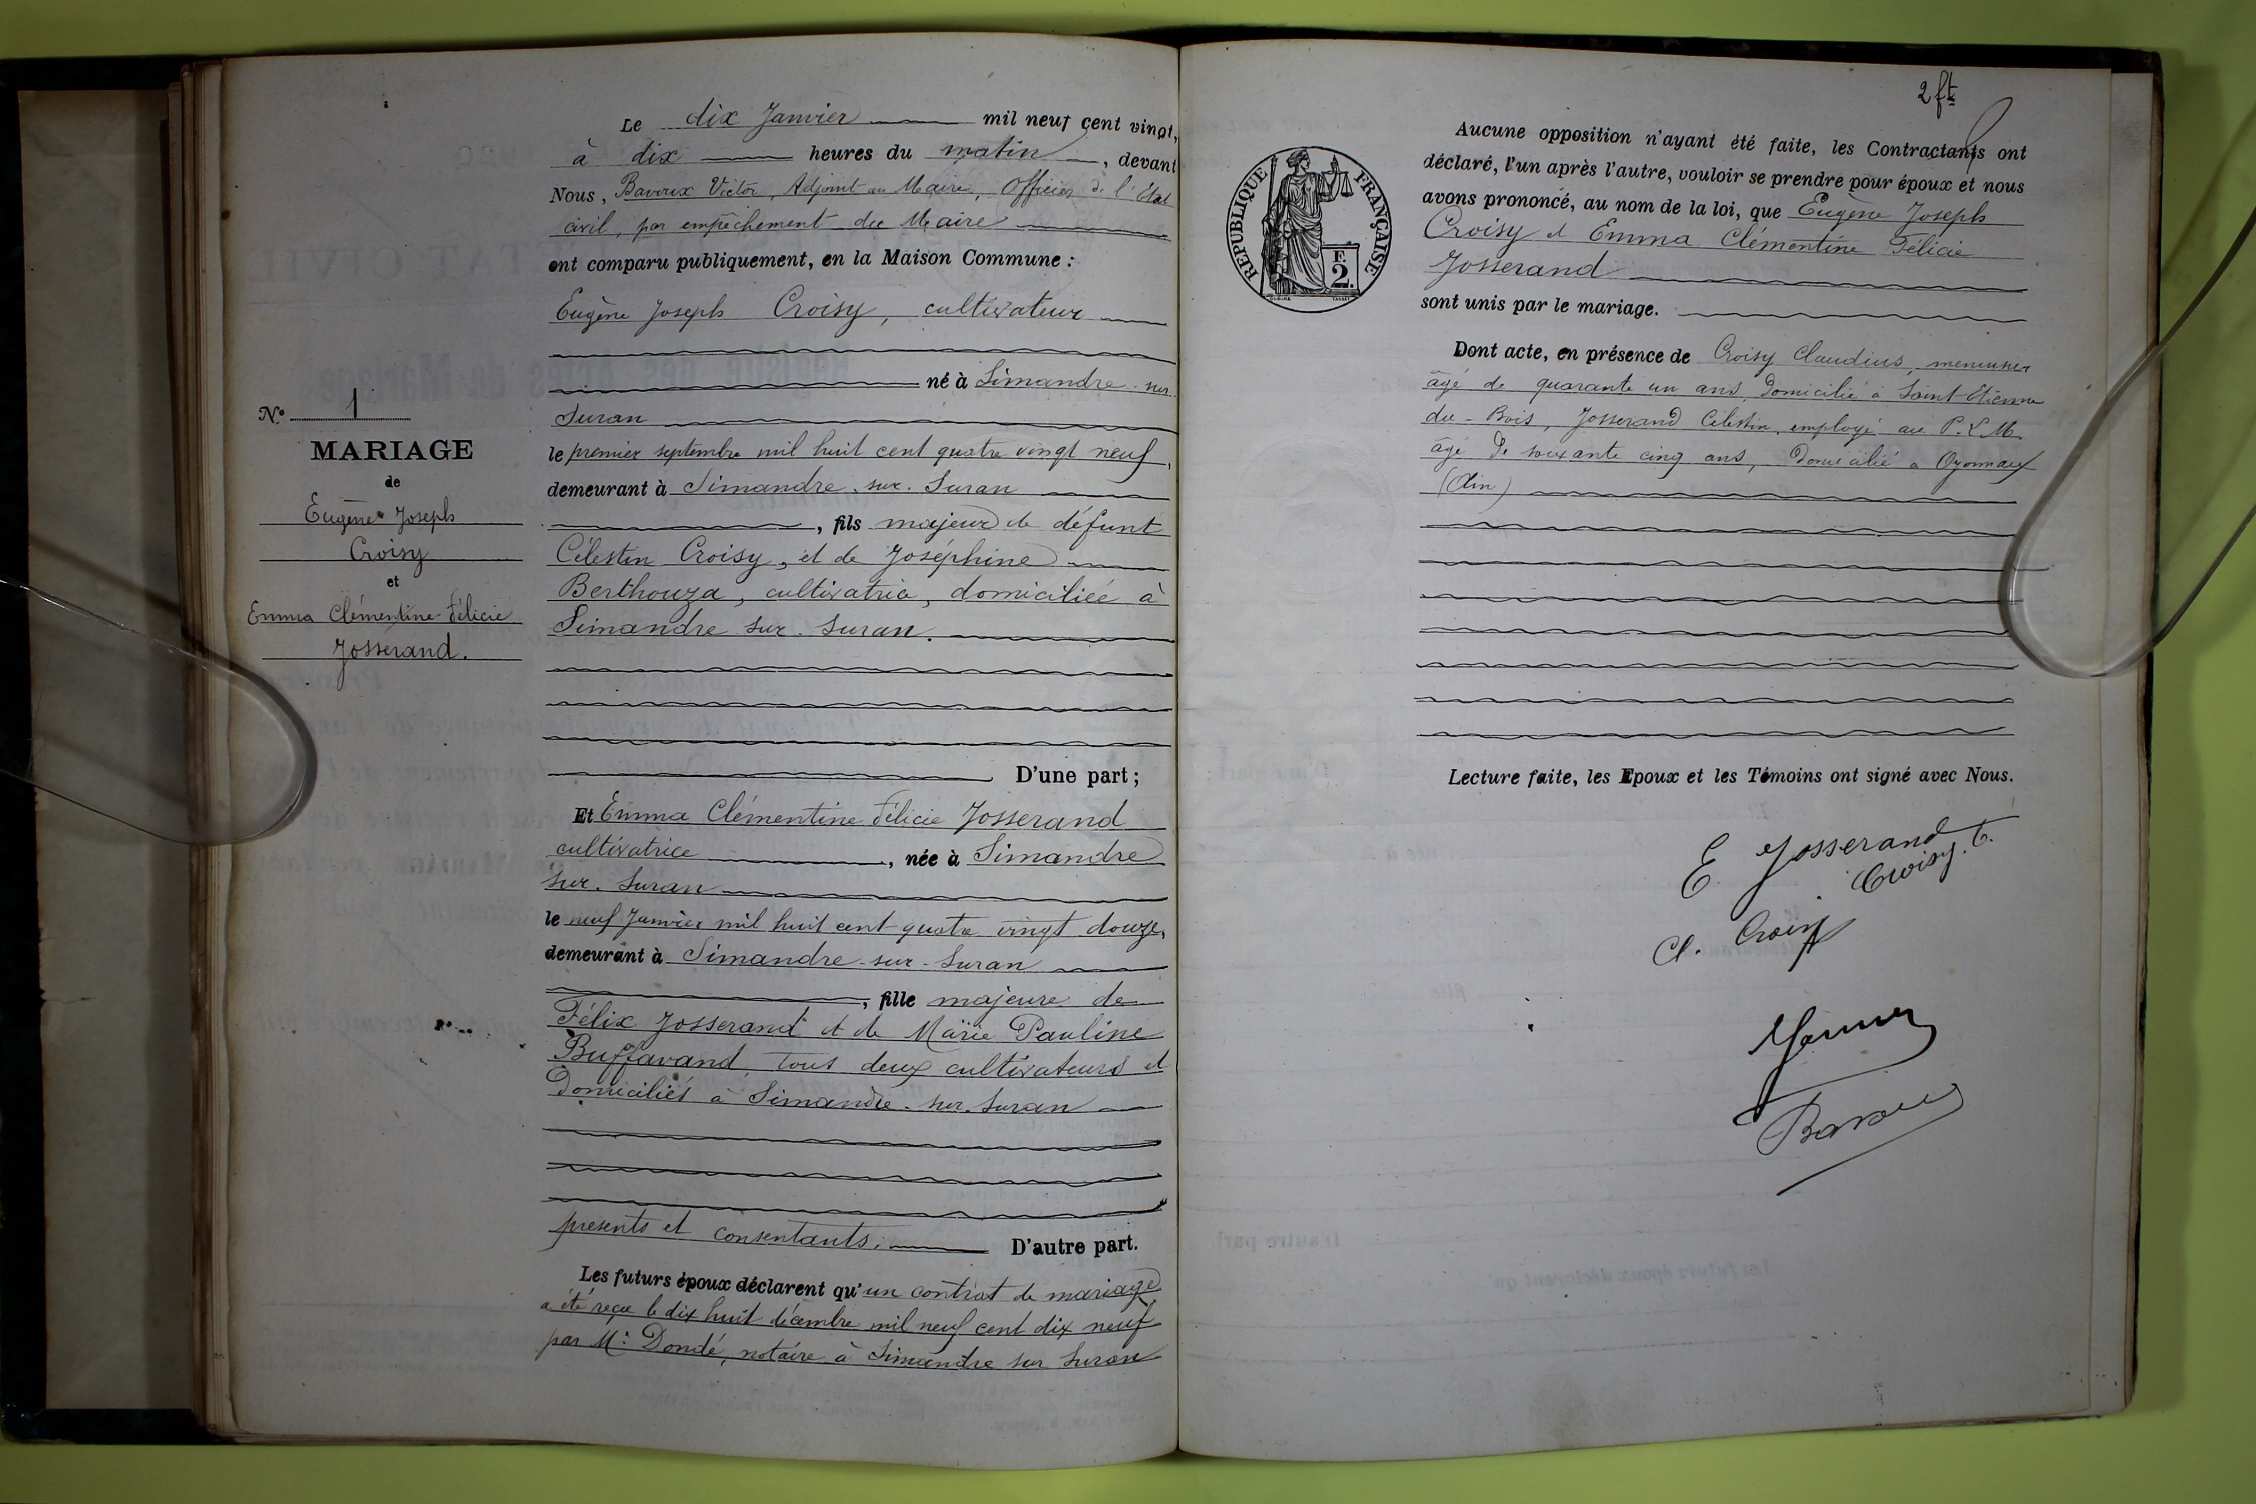 Le dix Janvier mil neuf cent vingt,
à dix heures du matin, devant
Nous, Bavoux Victor, Adjoint au Maire, Officier de l'Etat
civil, par empêchement du Maire
ont comparu publiquement, en la Maison Commune :
Eugène Joseph Croisy, cultivateur
né à Simandre-sur
Suran
le premier septembre mil huit cent quatre vingt neuf,
demeurant à Simandre-sur-Suran
, fils majeur de défunt
Célestin Croisy, et de Joséphine
Berthouza, cultivatrice, domiciliée à
Simandre sur-Suran.
D'une part ;
N.° 1
MARIAGE
de
Eugène Joseph
Croisy
et
Emma Clémentine Félicie
Josserand.
Et Emma Clémentine Félicie Josserand
cultivatrice, née à Simandre
sur-Suran
le neuf Janvier mil huit cent quatre vingt douze,
demeurant à Simandre-sur-Suran
, fille majeure de
Félix Josserand et de Marie Pauline
Buffavand, tous deux cultivateurs et
domiciliés à Simandre-sur-Suran
présents et consentants. D'autre part.
Les futurs époux déclarent qu'un contrat de mariage
a été reçu le dix huit décembre mil neuf cent dix neuf
par Me Dondé, notaire à Simandre sur Suran
2 ft
RÉPUBLIQUE FRANÇAISE
F.
2.
Aucune opposition n'ayant été faite, les Contractants ont
déclaré, l'un après l'autre, vouloir se prendre pour époux et nous
avons prononcé, au nom de la loi, que Eugène Joseph
Croisy et Emma Clémentine Félicie
Josserand
sont unis par le mariage.
Dont acte, en présence de Croisy Claudius, menuisier
âgé de quarante un ans, domicilié à Saint-Etienne
du-Bois, Josserand Célestin, employé au P.L.M.
âgé de soixante cinq ans, domicilié à Oyonnax
(Ain)
Lecture faite, les Epoux et les Témoins ont signé avec Nous.
E Josserand
Croisy. E.
Cl. Croisy
Bavoux